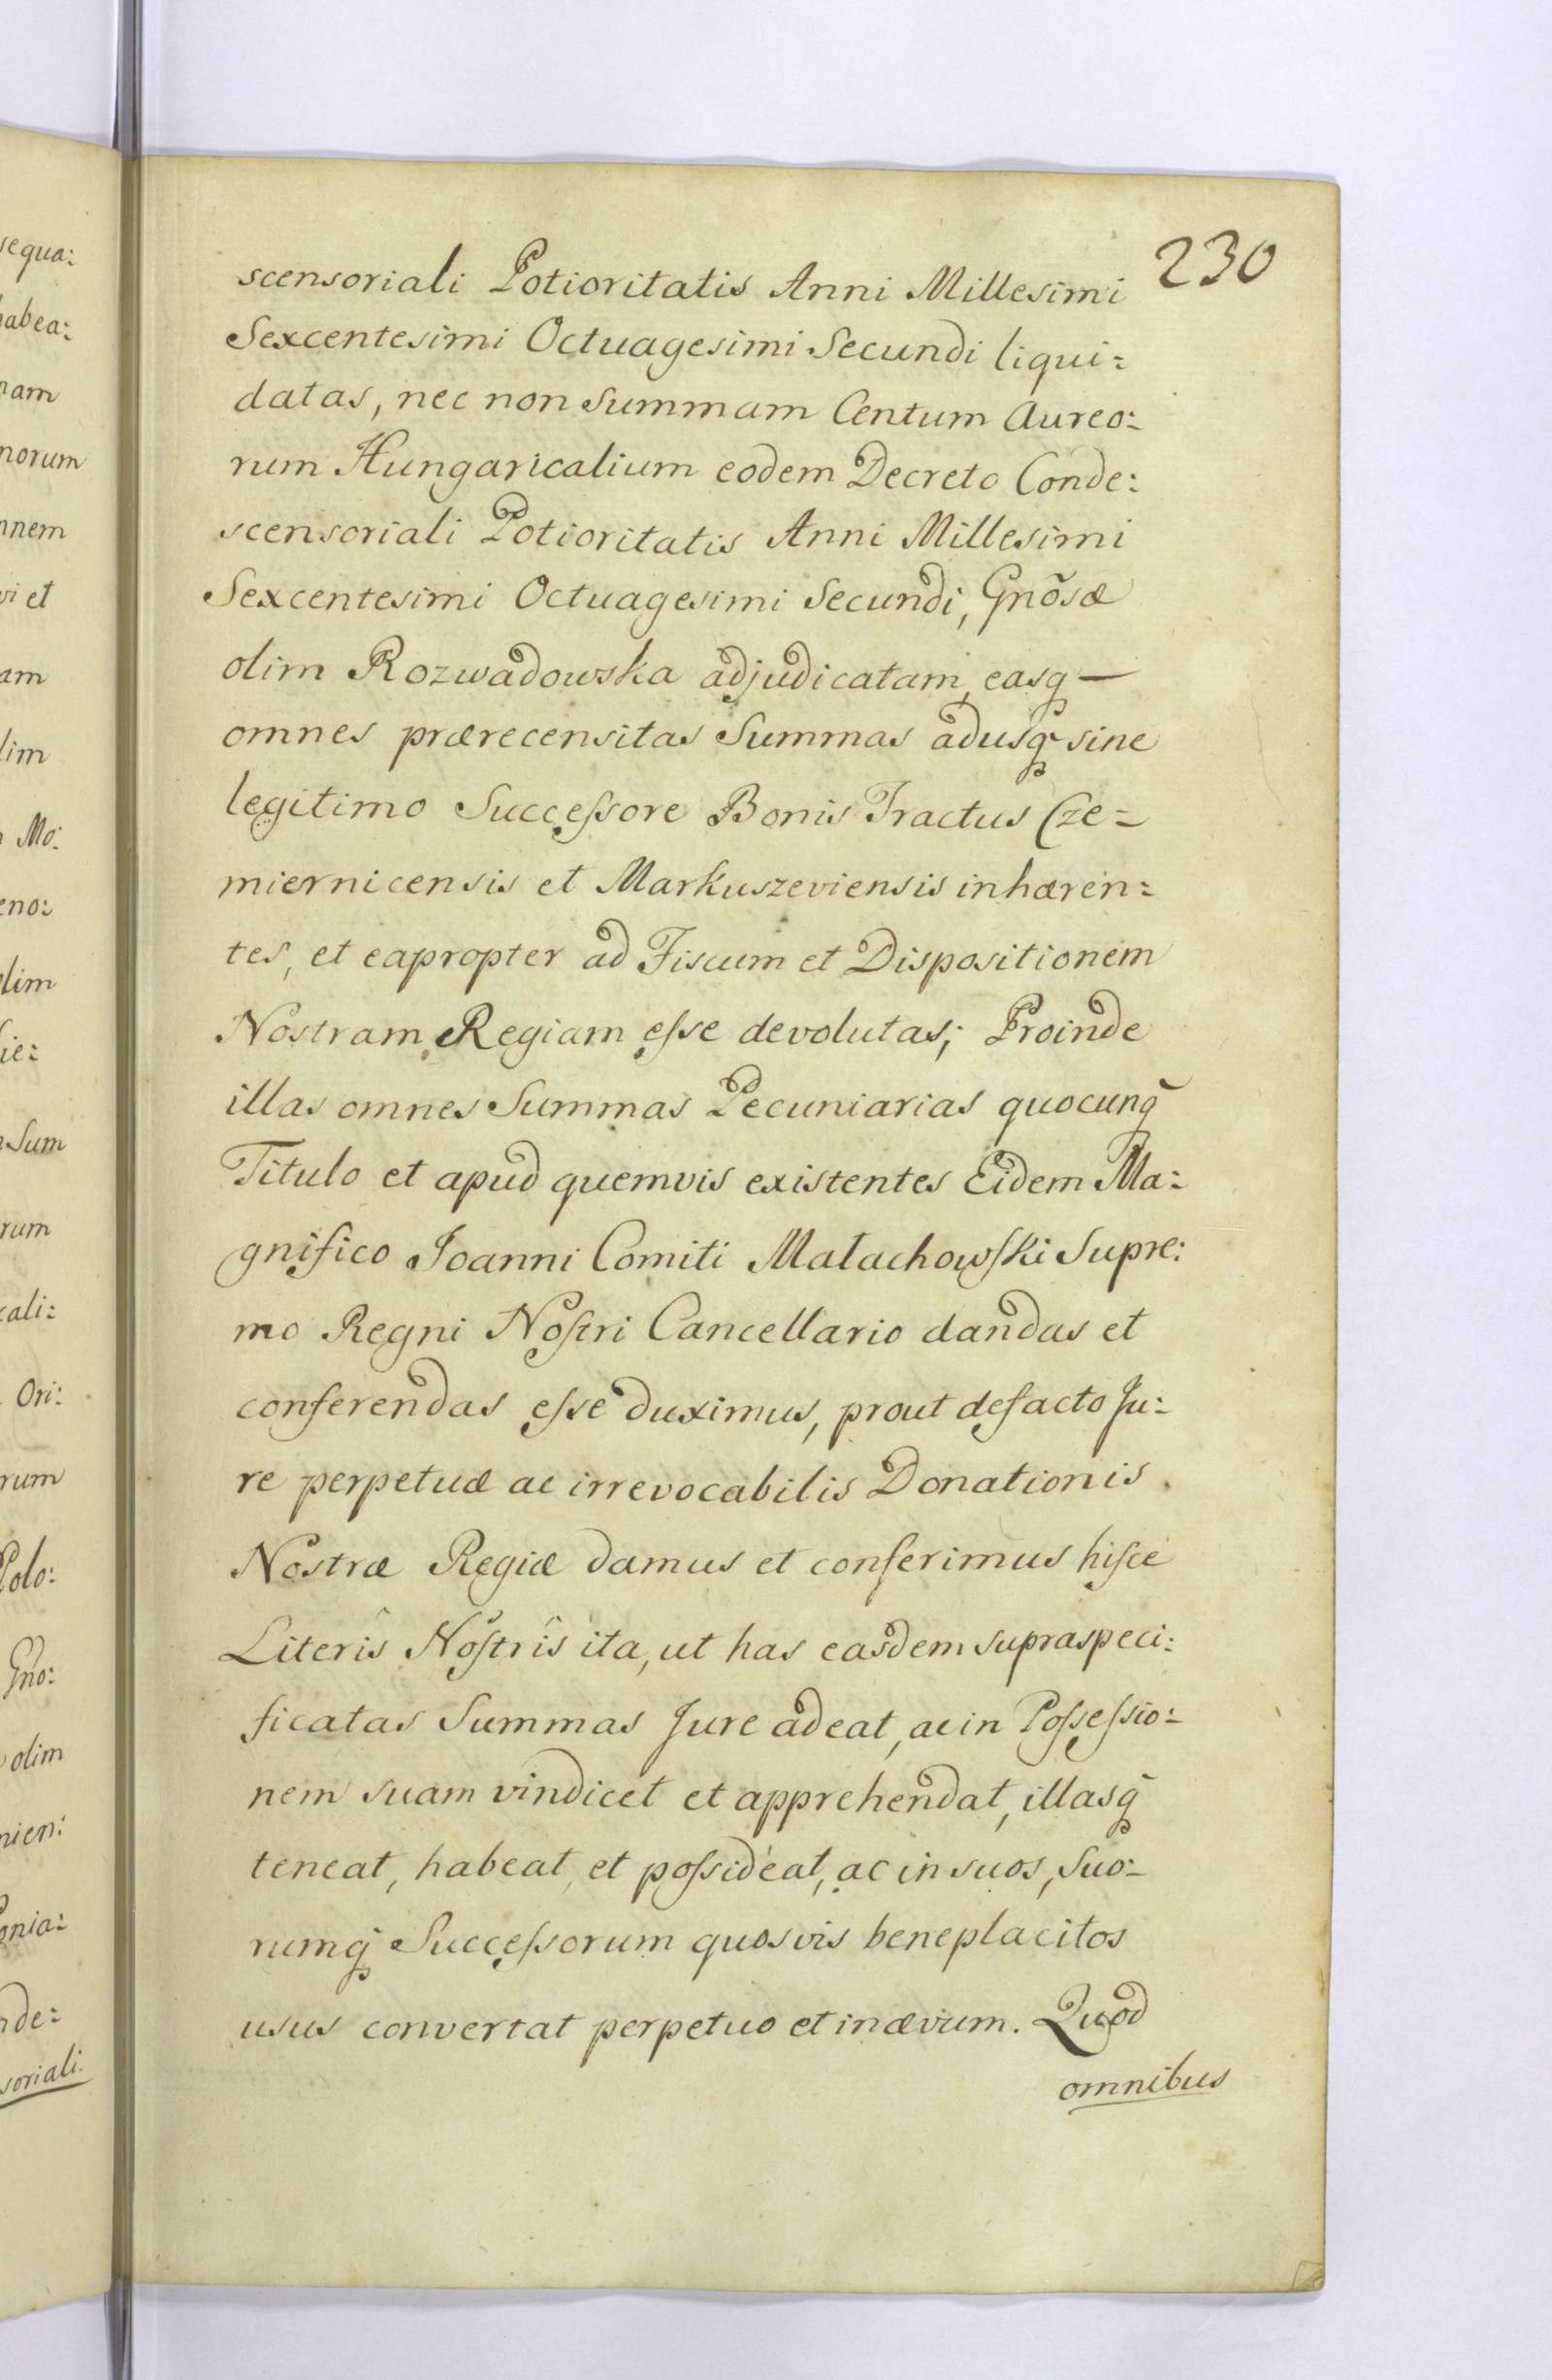 230
scensoriali Potioritatis Anni Millesimi
Sexcentesimi Octuagesimi Secundi liqui:
datas, nec non Summam Centum Aureo:
rum Hungaricalium eodem Decreto Conde:
scensoriali Potioritatis Anni Millesimi
Sexcentesimi Octuagesimi Secundi, Gnõsæ
olim Rozwadowska adjudicatam, easq̃ —
omnes prærecensitas Summas adusq̃ sine
legitimo Succeſsore Bonis Tractus Cze=
miernicensis et Markuszeviensis inhæren:
tes, et eapropter ad Fiscum et Dispositionem
Nostram Regiam eſse devolutas; Proinde
illas omnes Summas Pecuniarias quocunq̃
Titulo et apud quemvis existentes Eidem Ma:
gnifico Joanni Comiti Małachowſki Supre:
mo Regni Noſtri Cancellario dandas et
conferendas eſse duximus, prout defacto Ju:
re perpetuæ ac irrevocabilis Donationis
Nostræ Regiæ damus et conferimus hiſce
Literîs Noſtrîs ita, ut has easdem supraspeci:
ficatas Summas Jure adeat, ac in Poſseſsio:
nem suam vindicet et apprehendat, illasq̃
teneat, habeat, et poſsideat, ac in suos, Suo:
rumq̃ Succeſsorum quosvis beneplacitos
usus convertat perpetuo et inævum. Quod
omnibus
sequa:
habea:
nam
norum
nnem
vi et
am
lim
Mo:
eno:
lim
ie:
Sum
rum
cali:
Ori:
rum
Polo:
Gno:
olim
nien:
onia:
nde:
soriali.